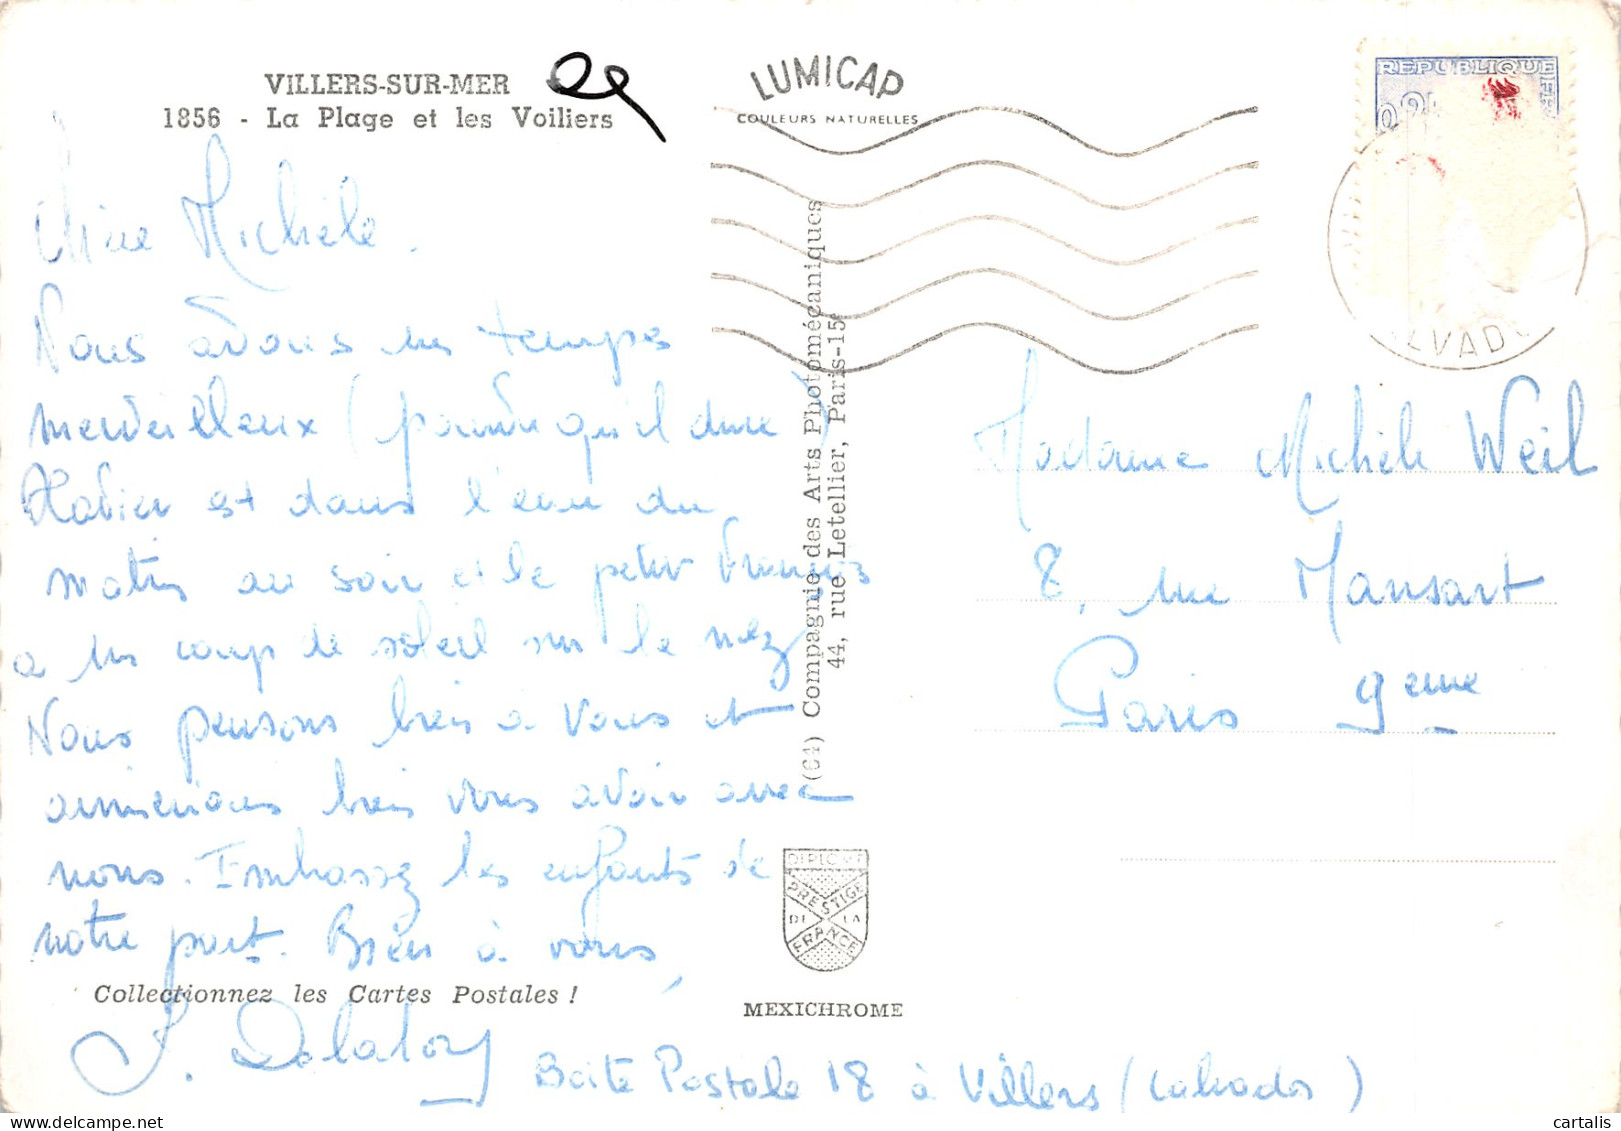 VILLERS-SUR-MER
1856 - La Plage et les Voiliers
LUMICAP
COULEURS NATURELLES
REPUBLIQUE
LVADO
Chère Michèle.
Nous avons un temps
merveilleux (pourvu qu'il dure)
Xavier est dans l'eau du
matin au soir et le petit François
a un coup de soleil sur le nez
Nous pensons bien à vous et
aimerions bien vous avoir avec
nous. Embrassez les enfants de
notre part. Bien à vous,
Collectionnez les Cartes Postales !
Boîte Postale 18 à Villers (Calvados)
(64) Compagnie des Arts Photomécaniques
44, rue Letellier, Paris-15e
DIPLOME
PRESTIGE
DE LA
FRANCE
MEXICHROME
Madame Michèle Weil
8, rue Mansart
Paris 9eme
cartalis | delcampe.net